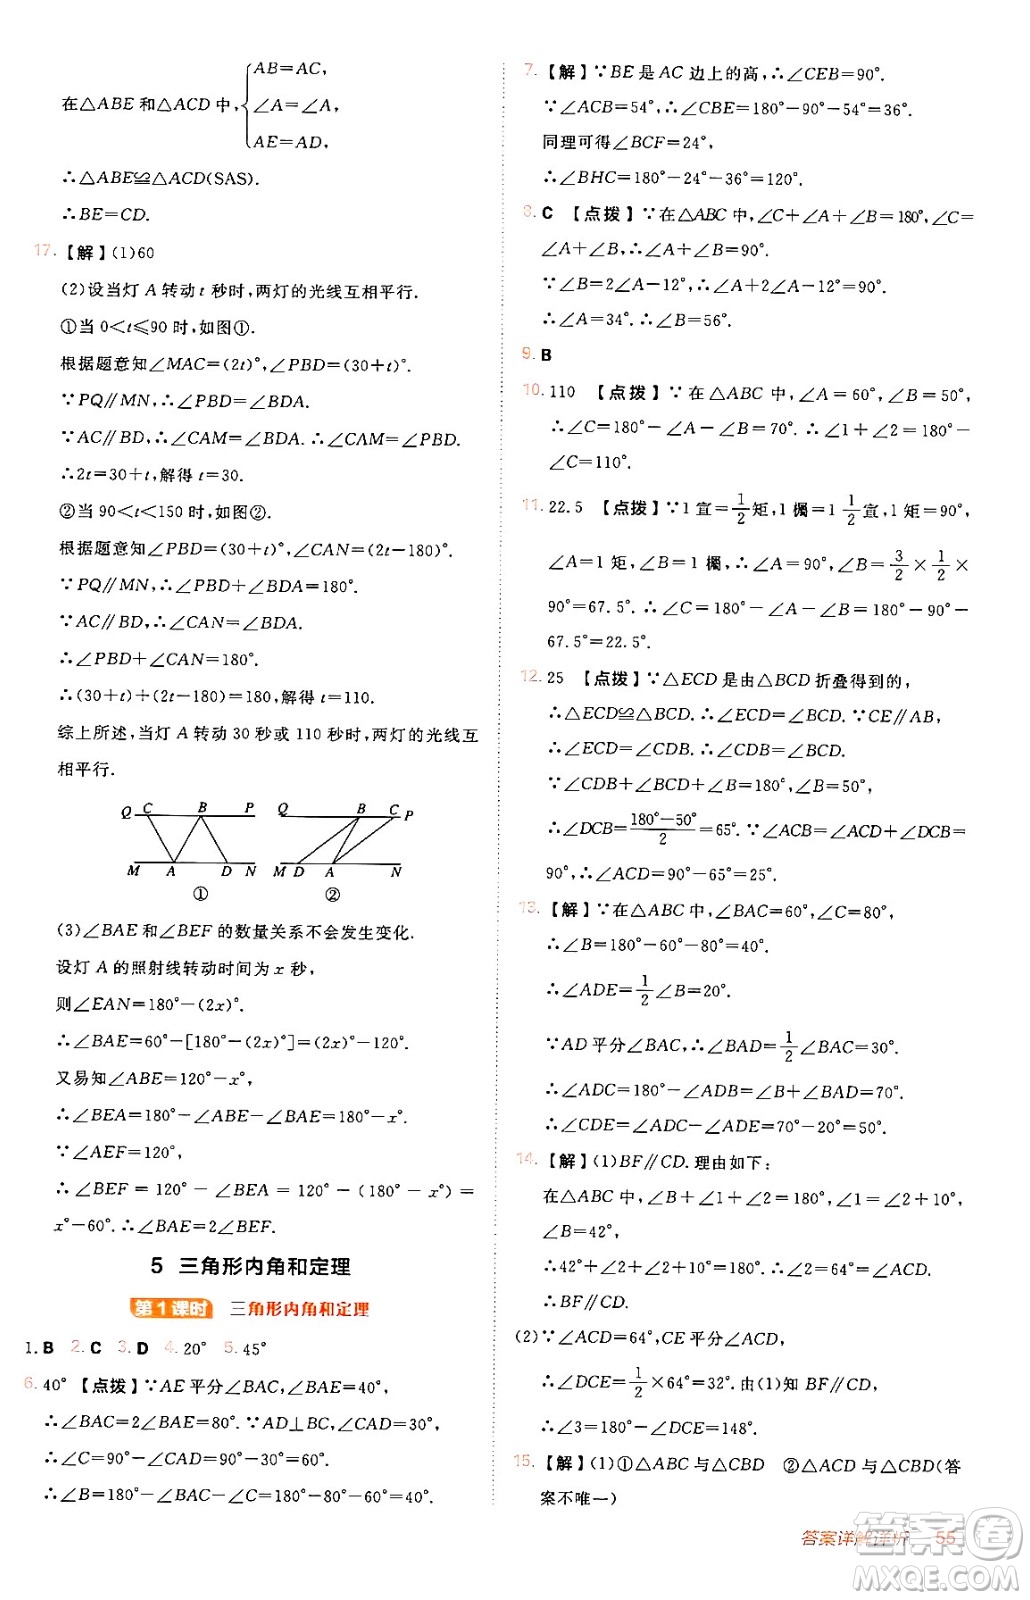 在△ABE和△ACD中,{AB=AC,
∠A=∠A,
AE=AD,
∴△ABE≌△ACD(SAS).
∴BE=CD.
17.【解】(1)60
(2)设当灯 A 转动 t 秒时,两灯的光线互相平行.
①当 0<t≤90 时,如图①.
根据题意知∠MAC=(2t)°,∠PBD=(30+t)°.
∵PQ∥MN,∴∠PBD=∠BDA.
∵AC∥BD,∴∠CAM=∠BDA.∴∠CAM=∠PBD.
∴2t=30+t,解得 t=30.
②当 90<t<150 时,如图②.
根据题意知∠PBD=(30+t)°,∠CAN=(2t-180)°.
∵PQ∥MN,∴∠PBD+∠BDA=180°.
∵AC∥BD,∴∠CAN=∠BDA.
∴∠PBD+∠CAN=180°.
∴(30+t)+(2t-180)=180,解得 t=110.
综上所述,当灯 A 转动 30 秒或 110 秒时,两灯的光线互
相平行.
Q C B P
M A D N
①
Q B C P
M D A N
②
(3)∠BAE 和∠BEF 的数量关系不会发生变化.
设灯 A 的照射线转动时间为 x 秒,
则∠EAN=180°-(2x)°.
∴∠BAE=60°-[180°-(2x)°]=(2x)°-120°.
又易知∠ABE=120°-x°,
∴∠BEA=180°-∠ABE-∠BAE=180°-x°.
∵∠AEF=120°,
∴∠BEF=120°-∠BEA=120°-(180°-x°)=
x°-60°.∴∠BAE=2∠BEF.
5 三角形内角和定理
第1课时 三角形内角和定理
1.B 2.C 3.D 4.20° 5.45°
6.40° 【点拨】∵AE 平分∠BAC,∠BAE=40°,
∴∠BAC=2∠BAE=80°.∵AD⊥BC,∠CAD=10°,
∴∠C=180°-90°-∠CAD=180°-90°-10°=80°.
∴∠B=180°-∠BAC-∠C=180°-80°-80°=40°.
7.【解】∵BE 是 AC 边上的高,∴∠CEB=90°.
∵∠ACB=54°,∴∠CBE=180°-90°-54°=36°.
同理可得∠BCF=24°,
∴∠BHC=180°-24°-36°=120°.
8.C 【点拨】∵在△ABC中,∠C+∠A+∠B=180°,∠C=
∠A+∠B,∴∠A+∠B=90°.
∵∠B=2∠A-12°,∴∠A+2∠A-12°=90°.
∴∠A=34°.∴∠B=56°.
9.B
10.110 【点拨】∵在△ABC 中,∠A=60°,∠B=50°,
∴∠C=180°-∠A-∠B=70°.∴∠1+∠2=180°-
∠C=110°.
11.22.5 【点拨】∵1 宣=1/2矩,1 欘=1 1/2宣,1 矩=90°,
∠A=1 矩,∠B=1 欘,∴∠A=90°,∠B=3/2×1/2×
90°=67.5°.∴∠C=180°-∠A-∠B=180°-90°-
67.5°=22.5°.
12.25 【点拨】∵△ECD 是由△BCD 折叠得到的,
∴△ECD≌△BCD.∴∠ECD=∠BCD.∵CE∥AB,
∴∠ECD=∠CDB.∴∠CDB=∠BCD.
∵∠CDB+∠BCD+∠B=180°,∠B=50°,
∴∠DCB=(180°-50°)/2=65°.∵∠ACB=∠ACD+∠DCB=
90°,∴∠ACD=90°-65°=25°.
13.【解】∵在△ABC 中,∠BAC=60°,∠C=80°,
∴∠B=180°-60°-80°=40°.
∴∠ADE=1/2∠B=20°.
∵AD 平分∠BAC,∴∠BAD=1/2∠BAC=30°.
∴∠ADC=180°-∠ADB=∠B+∠BAD=70°.
∴∠CDE=∠ADC-∠ADE=70°-20°=50°.
14.【解】(1)BF∥CD.理由如下:
在△ABC 中,∠B+∠1+∠2=180°,∠1=∠2+10°,
∠B=42°,
∴42°+∠2+∠2+10°=180°.∴∠2=64°.
∴BF∥CD.
(2)∵∠ACD=64°,CE 平分∠ACD,
∴∠DCE=1/2×64°=32°.由(1)知 BF∥CD,
∴∠3=180°-∠DCE=148°.
15.【解】(1)①△ABC 与△CBD ②△ACD 与△CBD(答
案不唯一)
答案详解详析 55
答案卷
MXQE.COM